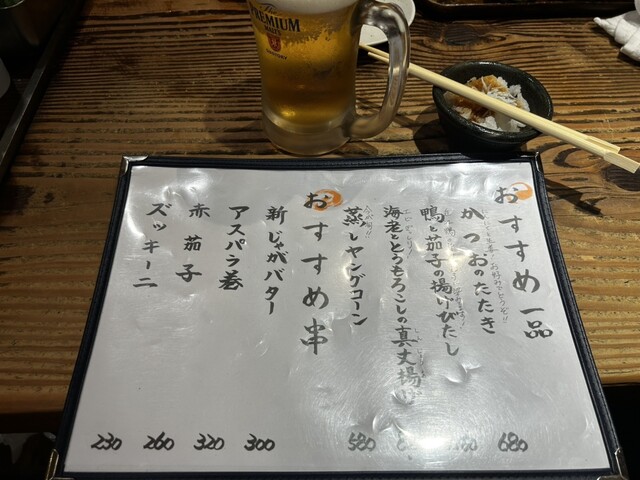 The
PREMIUM
MALT'S
SUNTORY
おすすめ一品
かつおのたたき 680
鴨と茄子の揚げびたし
海老ととうもろこしの真丈揚げ
蒸しヤングコーン 580
おすすめ串
新じゃがバター 300
アスパラ巻 320
赤茄子 260
ズッキーニ 230